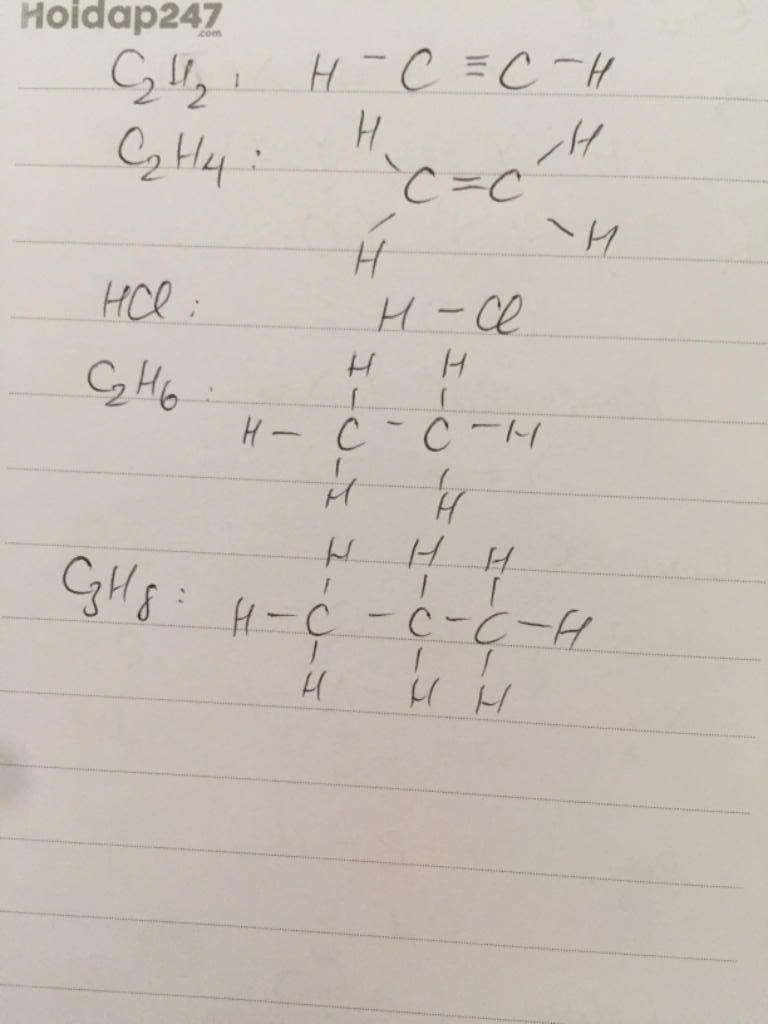 Hoidap247
.com
C₂H₂: H - C ≡ C - H
C₂H₄:
H H
C = C
H H
HCl: H - Cl
C₂H₆:
H H
H - C - C - H
H H
C₃H₈:
H H H
H - C - C - C - H
H H H